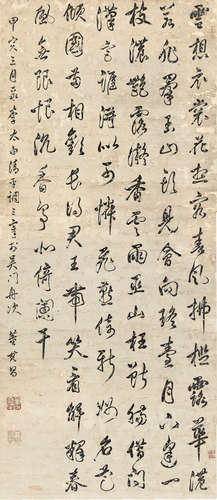 雲想衣裳花想容春風拂檻露華濃
若非羣玉山頭見會向瑤臺月下逢一
枝濃艷露凝香雲雨巫山枉斷腸借問
漢宮誰得似可憐飛燕倚新妝名花
傾國兩相歡長得君王帶笑看解釋春
風無限恨沉香亭北倚闌干
甲寅三月李太白清平調三章於吳門舟次 董其昌